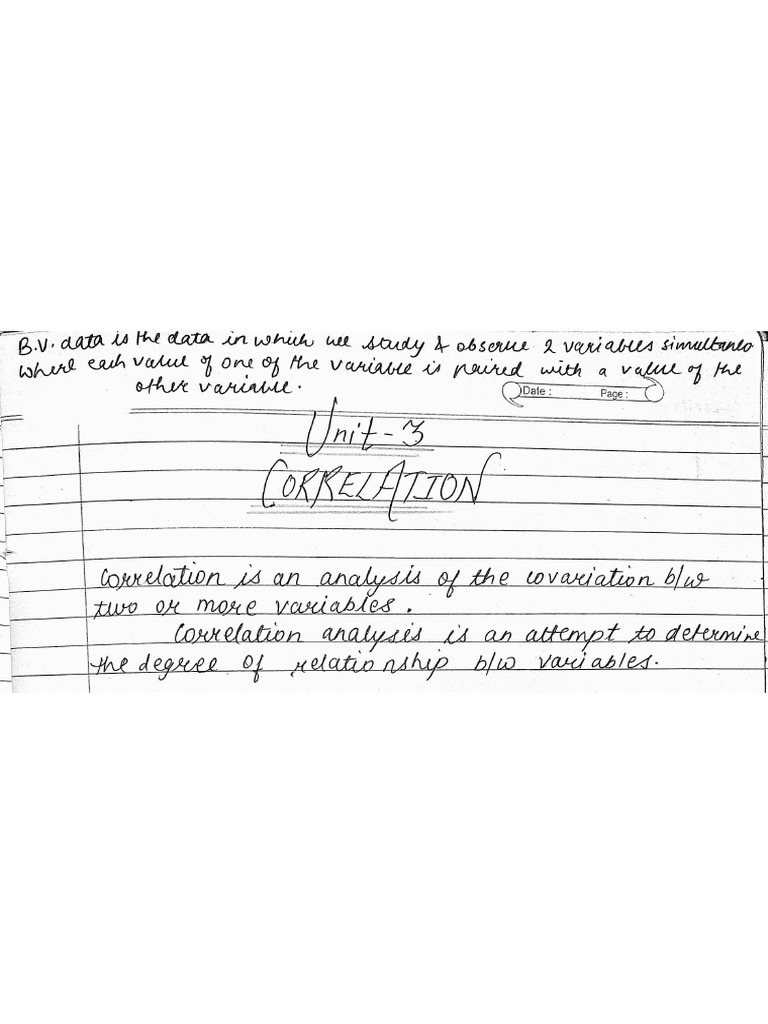 B.V. data is the data in which we study & observe 2 variables simultaneo
where each value of one of the variable is paired with a value of the
other variable.
Date : Page :
Unit-3
CORRELATION
Correlation is an analysis of the covariation b/w
two or more variables.
Correlation analysis is an attempt to determine
the degree of relationship b/w variables.